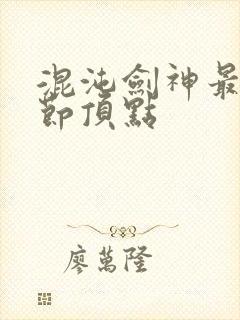 混沌劍神最
節頂點
廖萬隆